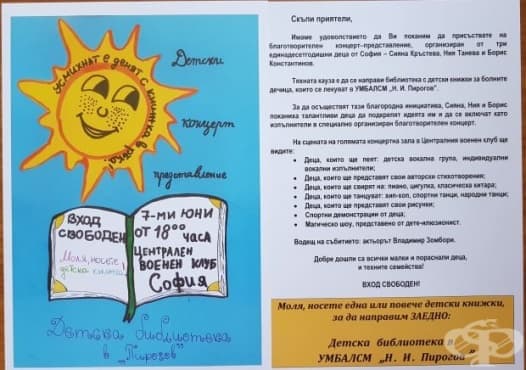 УСМИХНАТ Е ДЕНЯТ С КНИЖКА В РЪКА!
Детски
концерт
представление
ВХОД
СВОБОДЕН
Моля, носете
детска книжка!
7-МИ ЮНИ
ОТ 18⁰⁰ ЧАСА
ЦЕНТРАЛЕН
ВОЕНЕН КЛУБ
СОФИЯ
Детска библиотека
в „Пирогов"
Скъпи приятели,
Имаме удоволствието да Ви поканим да присъствате на
благотворителен концерт–представление, организиран от три
единадесетгодишни деца от София – Сияна Кръстева, Ния Танева и Борис
Константинов.
Тяхната кауза е да се направи библиотека с детски книжки за болните
дечица, които се лекуват в УМБАЛСМ „Н. И. Пирогов".
За да осъществят тази благородна инициатива, Сияна, Ния и Борис
поканиха талантливи деца да подкрепят идеята им и да се включат като
изпълнители в специално организиран благотворителен концерт.
На сцената на голямата концертна зала в Централния военен клуб ще
видите:
• Деца, които ще пеят: детска вокална група, индивидуални
вокални изпълнители;
• Деца, които ще представят свои авторски стихотворения;
• Деца, които ще свирят на: пиано, цигулка, класическа китара;
• Деца, които ще танцуват: хип-хоп, спортни танци, народни танци;
• Деца, които ще представят свои рисунки;
• Спортни демонстрации от деца;
• Магическо шоу, представено от дете-илюзионист.
Водещ на събитието: актьорът Владимир Зомбори.
Добре дошли са всички малки и пораснали деца,
и техните семейства!
ВХОД СВОБОДЕН!
Моля, носете една или повече детски книжки,
за да направим ЗАЕДНО:
Детска библиотека в
УМБАЛСМ „Н. И. Пирогов"